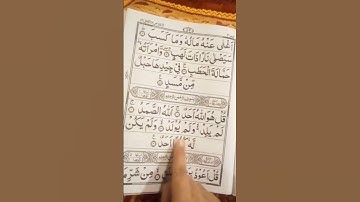 اَغْنٰى عَنْهُ مَالُهٗ وَمَا كَسَبَ
سَيَصْلٰى نَارًا ذَاتَ لَهَبٍ وَّامْرَاَتُهٗ
حَمَّالَةَ الْحَطَبِ فِيْ جِيْدِهَا حَبْلٌ
مِّنْ مَّسَدٍ
قُلْ هُوَ اللّٰهُ اَحَدٌ اَللّٰهُ الصَّمَدُ
لَمْ يَلِدْ وَلَمْ يُوْلَدْ وَلَمْ يَكُنْ
لَّهٗ اَحَدٌ
قُلْ اَعُوْذُ مِنْ شَرِّ